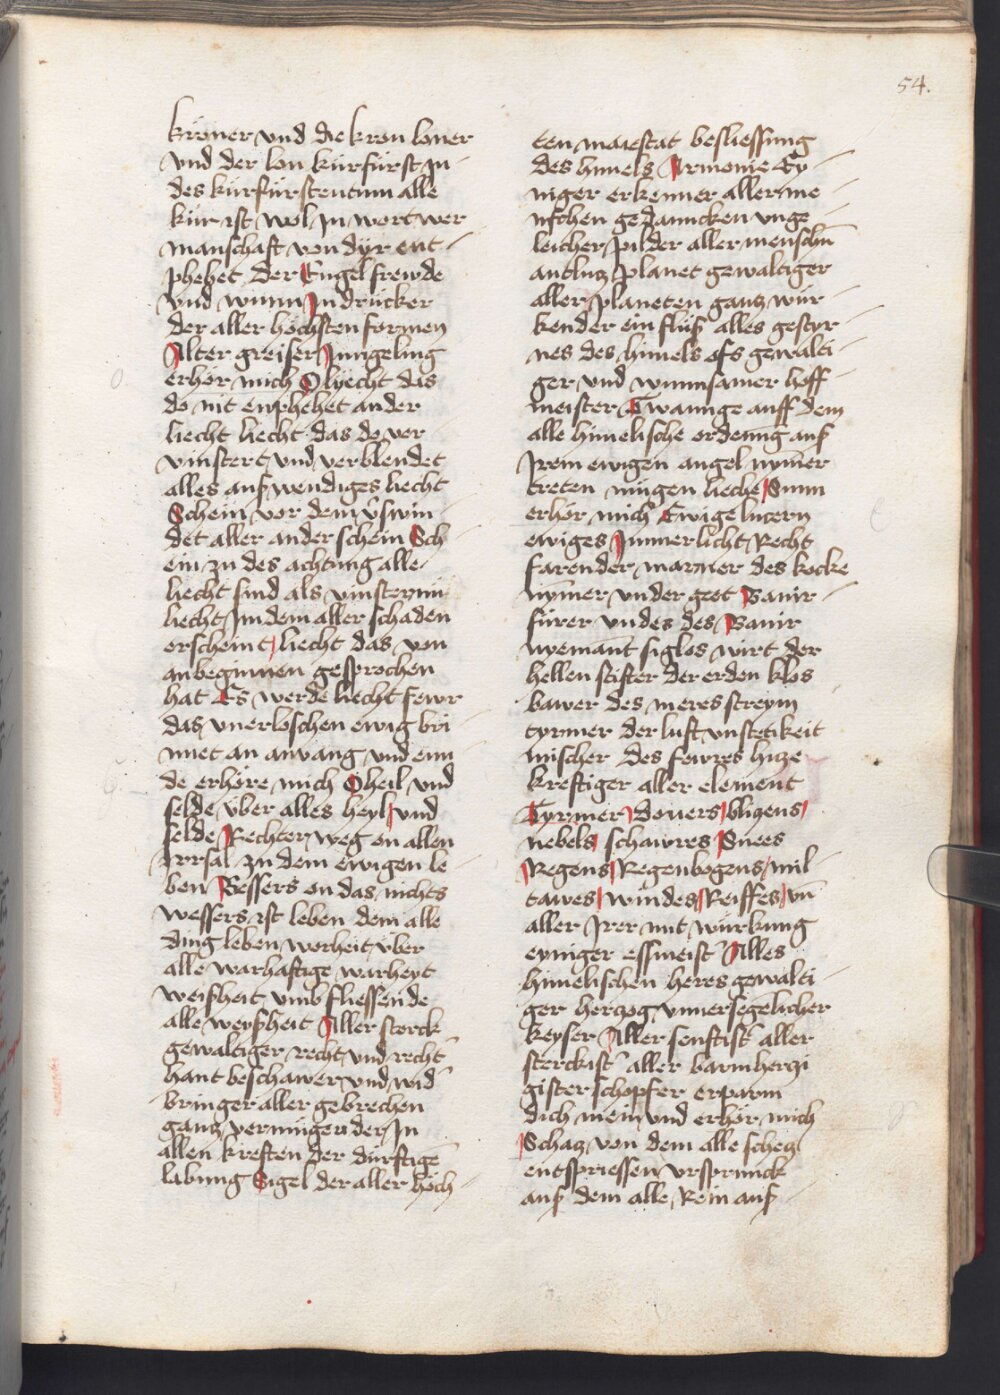 54.
kröner vnd die kron loner
vnd der lon kurfürst In
des kurfürstentum alle
kür ist wol In wort wer
manschaft von dyr ent
phehet Der Engel frewde
vnd wunn In drücker
der aller höchsten formen
Alter greiser Jungeling
erhör mich O lyecht das
do nit enphehet ander
liecht liecht das do ver
vinstert vnd verblendet
alles auß wendiges liecht
Schein vor dem v̾swin
det aller ander schein Sch
ein zu des achtung alle
liecht sind als vinsternü
liecht In dem aller schaden
erscheint liecht das von
anbeginnen gesprochen
hat Es werde liecht fewr
das vnerloschen ewig bri
nnet an anvang vnd enn
de erhöre mich O heil vnd
selde über alles heyl vnd
selde Rechter weg on allen
Irrsal zu dem ewigen le
ben Bessers on das nichts
wessers ist leben dem alle
ding leben worheit über
alle warhaftige warheyt
weißheit vmb fliessende
alle weyßheit Aller sterck
gewaltiger recht vnd recht̾
hant beschawer vnd wid̾
bringer aller gebrechen
gantz vermügender In
allen kreften der dürftige
labung Sigel der aller höch
ten maiestat besliessung
des himels Armonie Ey
niger erkenner aller me
nschen gedanncken vnge
leicher pilder aller menschn̄
antlutz planet gewaltiger
aller planeten gantz wür
kender ein fluß alles gestyr
nes des himels ofs gewalti
ger vnd wunnsamer hoff
meister Twannge auff dem
alle himelische ordenūg auß
Irem ewigen angel nym̄er
treten mügen lieche Sunn
erhör mich Ewige lucern
ewiges Immerlicht Recht
farender marner des kocke
nym̄er vnder geet Banir
fürer vndes des Banir
nyemant siglos wirt der
hellen stifter der erden klos
bawer des meres streym
tyrmer der luft vnstetikeit
mischer des fewres hitze
kreftiger aller element
Tyrmer doners blitzens
nebels schawres Snees
Regens Regenbogens mil
tawes windes Reiffes vn̄
aller Irer mit würkung
eyniger essmeist̾ Alles
himelischen heres gewalti
ger hertzog vnuersegēlicher
keyser Aller senftist̾ aller
sterckist̾ aller barmhertzi
gister schopfer erparm
dich mein vnd erhör mich
Schatz von dem alle schetz
entspriessen vrsprunck
auß dem alle Rein auß